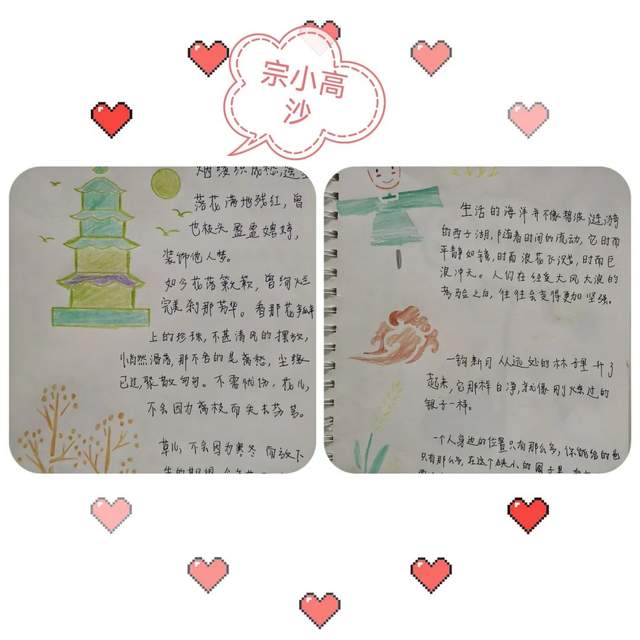 宗小高
沙
烟缕织成愁
落花满地残红,曾
也枝头盈盈娉婷,
装饰他人梦。
如今花落簌簌,曾绚烂
完美刹那芳华。看那花
上的珍珠,不甚清风的摆放,
悄然滑落,那不舍的是离愁,尘缘
已过,聚散匆匆。不需忧伤,花儿,
不会因为离枝而失去芬芳。
草儿,不会因为寒冬而放下
生的期
生活的海洋并不像碧波涟漪
的西子湖,随着时间的流动,它时而
平静如镜,时而浪花飞溅,时而巨
浪冲天。人们在经受大风大浪的
考验之后,往往会变得更加坚强。
一钩新月从远处的林子里升了
起来,它那样白净,就像刚淬过的
银子一样。
一个人身边的位置只有那么多,你能给的也
只有那么多,在这个狭小的圈子里